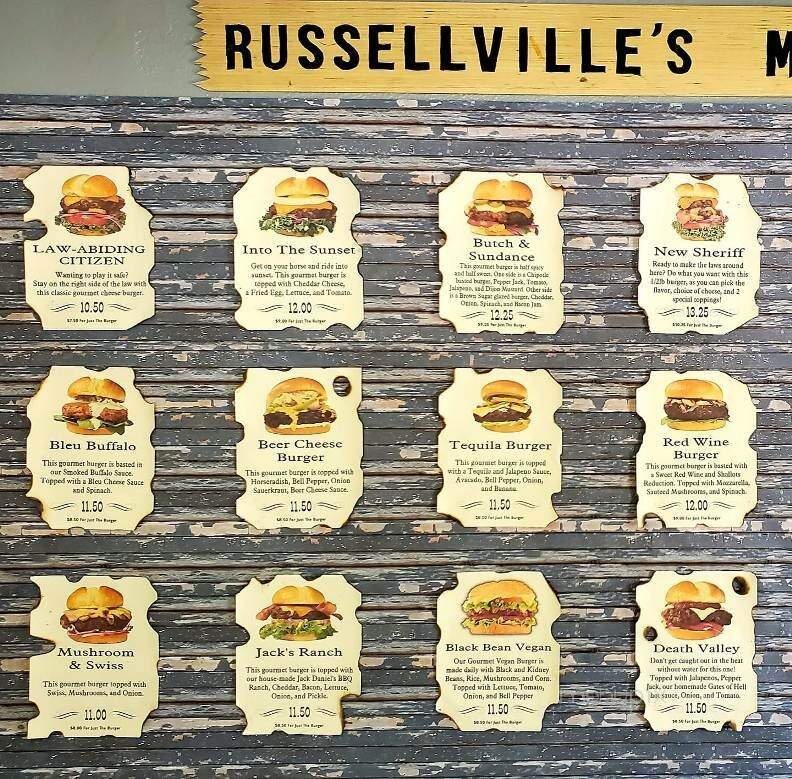 RUSSELLVILLE'S M
LAW-ABIDING
CITIZEN
Wanting to play it safe?
Stay on the right side of the law with
this classic gourmet cheese burger.
10.50
$7.50 For Just The Burger
Into The Sunset
Get on your horse and ride into
sunset. This gourmet burger is
topped with Cheddar Cheese,
a Fried Egg, Lettuce, and Tomato.
12.00
$9.00 For Just The Burger
Butch &
Sundance
This gourmet burger is half spicy
and half sweet. One side is a Chipotle
basted burger, Pepper Jack, Tomato,
Jalapeno, and Dijon Mustard. Other side
is a Brown Sugar glazed burger, Cheddar,
Onion, Spinach, and Bacon Jam.
12.25
$9.25 For Just The Burger
New Sheriff
Ready to make the laws around
here? Do what you want with this
1/2lb burger, as you can pick the
flavor, choice of cheese, and 2
special toppings!
13.25
$10.25 For Just The Burger
Bleu Buffalo
This gourmet burger is basted in
our Smoked Buffalo Sauce.
Topped with a Bleu Cheese Sauce
and Spinach.
11.50
$8.50 For Just The Burger
Beer Cheese
Burger
This gourmet burger is topped with
Horseradish, Bell Pepper, Onion
Sauerkraut, Beer Cheese Sauce.
11.50
$8.50 For Just The Burger
Tequila Burger
This gourmet burger is topped
with a Tequila and Jalapeno Sauce,
Avacado, Bell Pepper, Onion,
and Banana.
11.50
$8.50 For Just The Burger
Red Wine
Burger
This gourmet burger is basted with
a Sweet Red Wine and Shallots
Reduction. Topped with Mozzarella,
Sauteed Mushrooms, and Spinach.
12.00
$9.00 For Just The Burger
Mushroom
& Swiss
This gourmet burger topped with
Swiss, Mushrooms, and Onion.
11.00
$8.00 For Just The Burger
Jack's Ranch
This gourmet burger is topped with
our house-made Jack Daniel's BBQ
Ranch, Cheddar, Bacon, Lettuce,
Onion, and Pickle.
11.50
$8.50 For Just The Burger
Black Bean Vegan
Our Gourmet Vegan Burger is
made daily with Black and Kidney
Beans, Rice, Mushrooms, and Corn.
Topped with Lettuce, Tomato,
Onion, and Bell Pepper
11.50
$8.50 For Just The Burger
Death Valley
Don't get caught out in the heat
without water for this one!
Topped with Jalapenos, Pepper
Jack, our homemade Gates of Hell
hot sauce, Onion, and Tomato.
11.50
$8.50 For Just The Burger